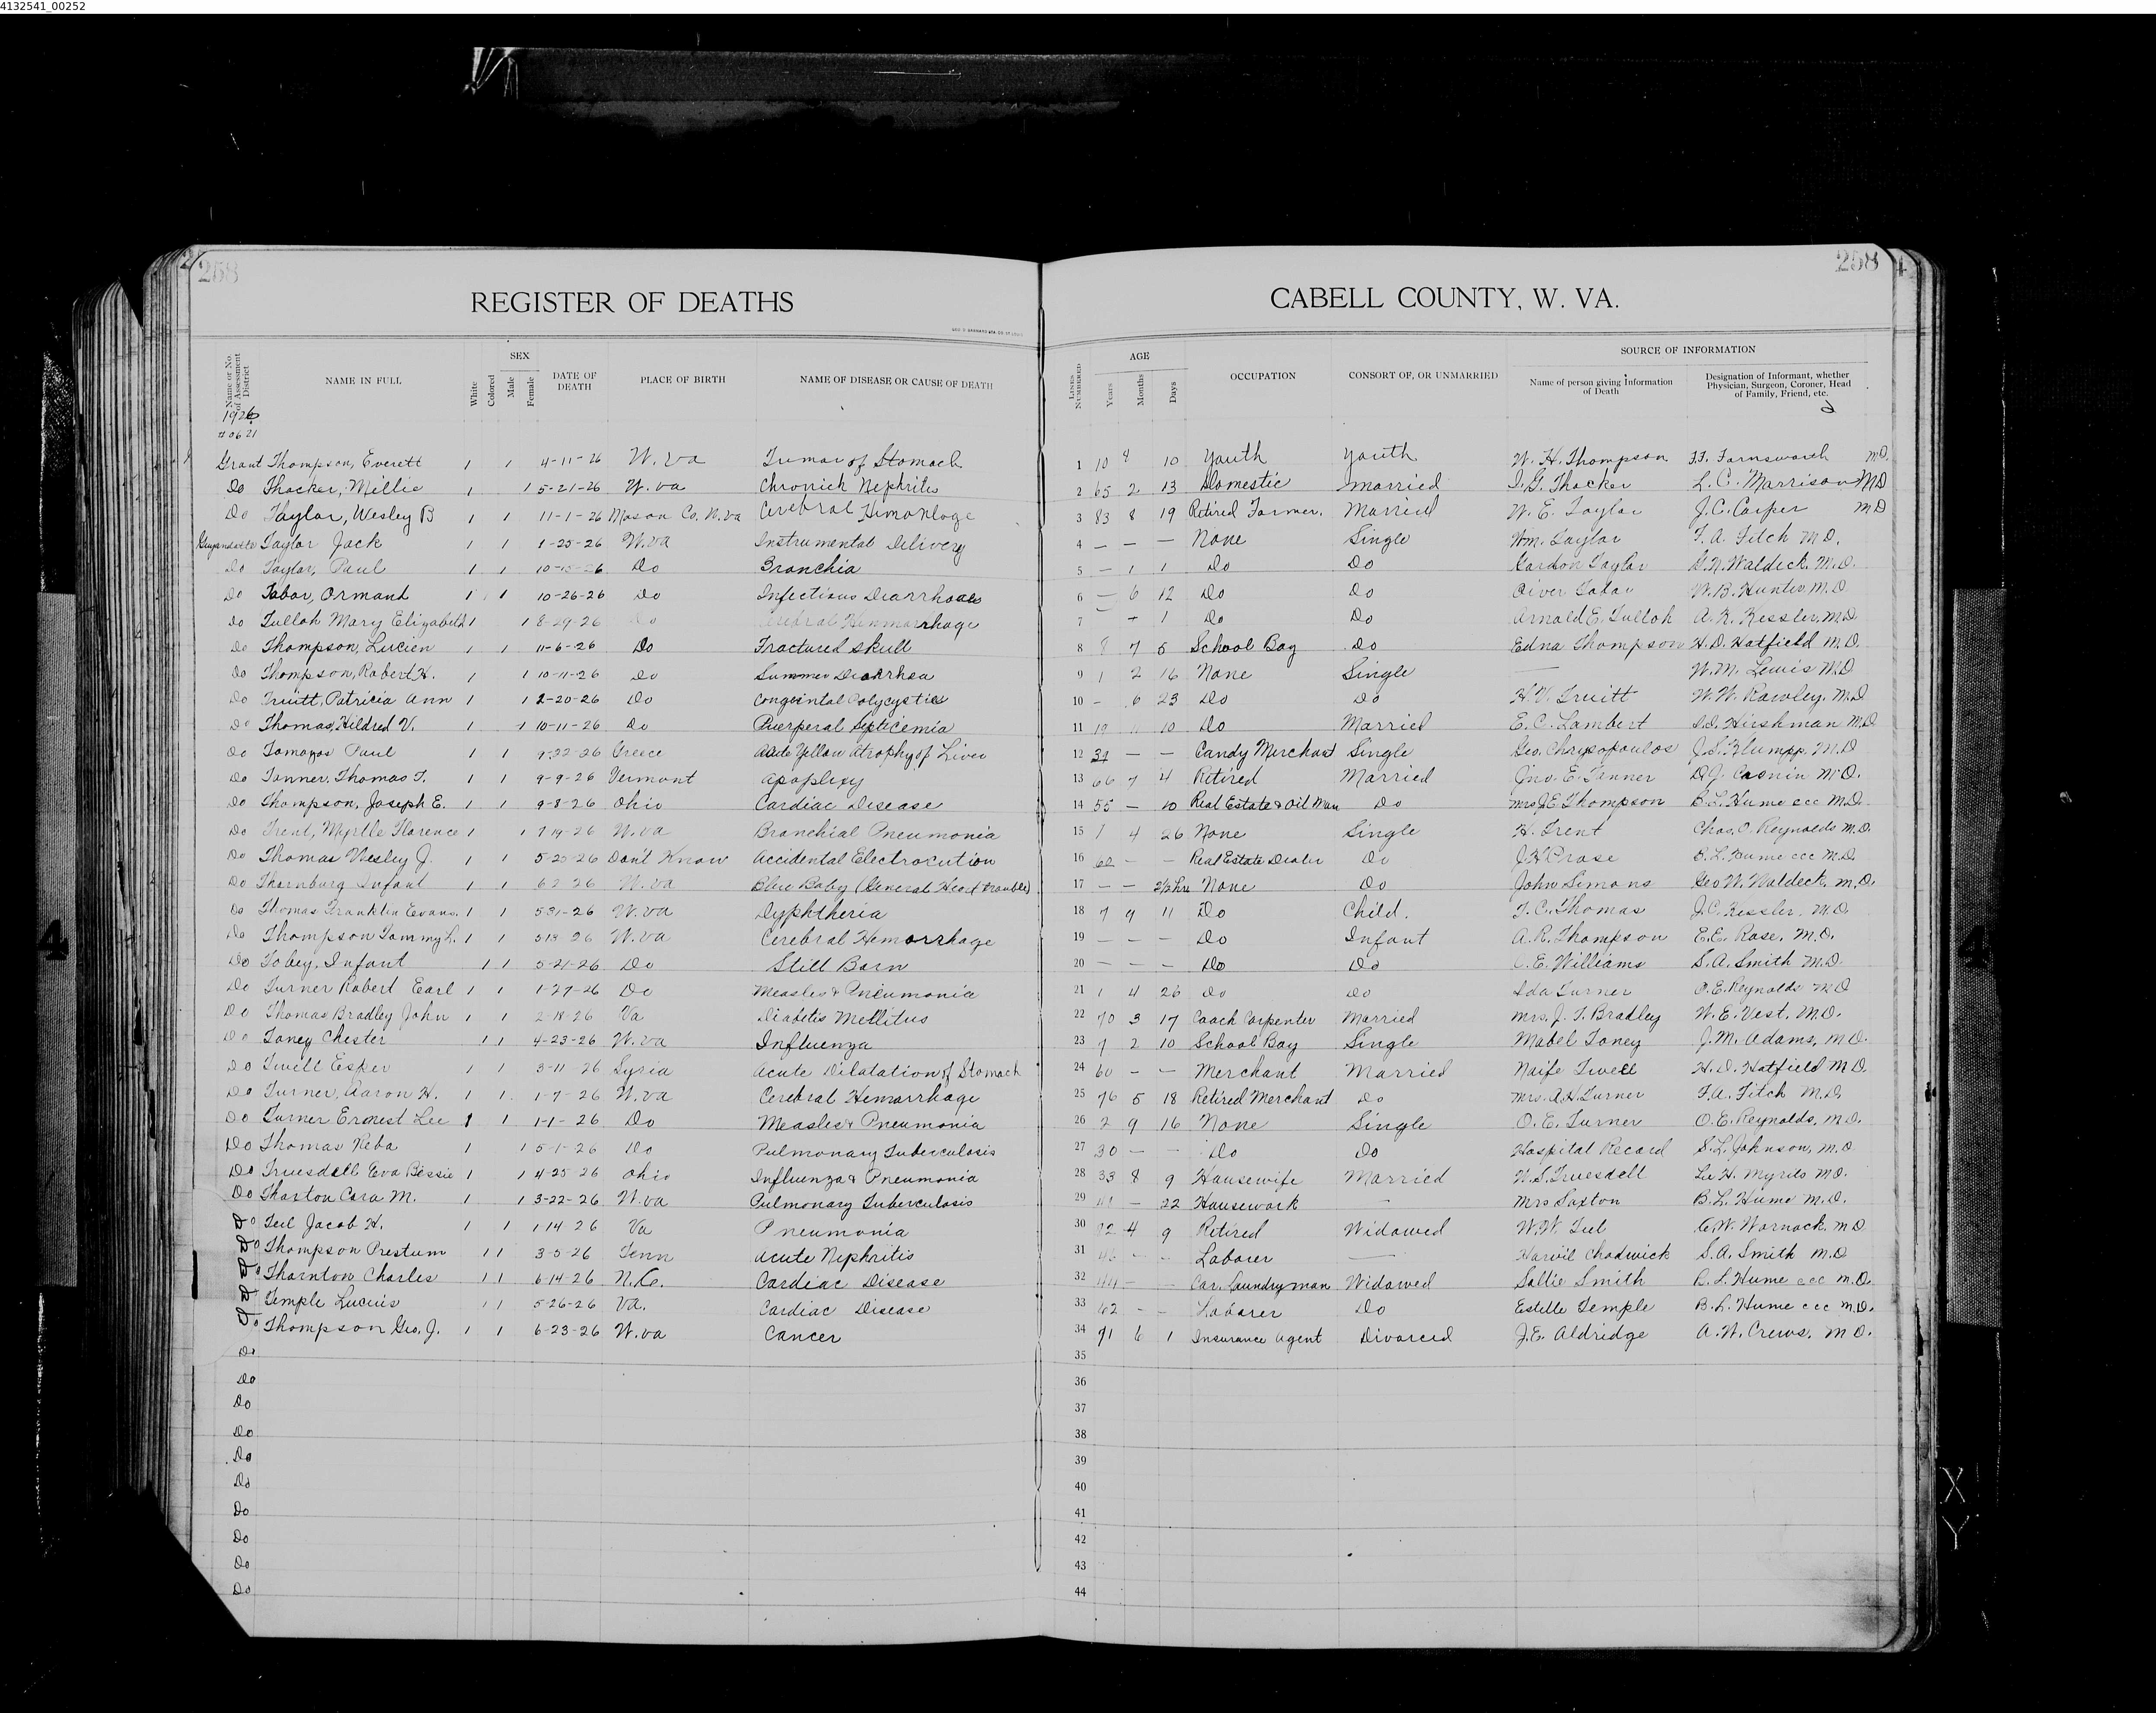 4132541_00252
258
REGISTER OF DEATHS
258
CABELL COUNTY, W. VA.
Name or No. of Assessment District
NAME IN FULL
White
Colored
SEX
Male
Female
DATE OF DEATH
PLACE OF BIRTH
NAME OF DISEASE OR CAUSE OF DEATH
LINES NUMBERED
AGE
Years
Months
Days
OCCUPATION
CONSORT OF, OR UNMARRIED
SOURCE OF INFORMATION
Name of person giving Information of Death
Designation of Informant, whether Physician, Surgeon, Coroner, Head of Family, Friend, etc.
1926
Grant Thompson, Everett 1 1 4-11-26 W. Va Tumor of Stomach 1 10 10 Youth Youth W. H. Thompson F.F. Farnsworth MD.
Do Thacker, Millie 1 1 5-21-26 W. Va Chronick Nephritis 2 65 2 13 Domestic Married I.G. Thacker L. C. Morrison MD
Do Taylor, Wesley B 1 1 11-1-26 Mason Co. W. Va Cerebral 3 83 8 19 Retired Farmer. Married W. E. Taylor J.C. Carper MD
Guyandotte Taylor Jack 1 1 1-25-26 W. Va Instrumental Delivery 4 — — — None Single Wm. Taylor F. A. Fitch M.D.
Do Taylor, Paul 1 1 Do Bronchia 5 — 1 1 Do Do Gordon Taylor G.N. Waldeck. M.D.
Do Tabor, Ormand 1 1 10-26-26 Do Infectious 6 — 6 12 Do Do Oiver Tabor W.B. Hunter M.D.
Do Tulloh Mary Elizabeth 1 1 8-29-26 Do 7 1 Do Do Arnold E. Tulloh A. K. Kessler, M.D.
Do Thompson, Lucien 1 1 11-6-26 Do Fractured skull 8 8 7 5 School Boy Do Edna Thompson H.D. Hatfield M.D.
Do Thompson, Robert H. 1 1 10-11-26 Do Summer 9 1 2 16 None Single — W.M. Lewis M.D
Do Truitt, Patricia Ann 1 1 2-20-26 Do 10 - 6 23 Do Do H.V. Truitt W.W. Rawley, M.D
Do Thomas, Hildred V. 1 1 10-11-26 Do Puerperal Septicemia 11 19 10 Do Married E. C. Lambert I.I. Hirshman M.D
Do Tomazos Paul 1 1 9-22-26 Greece Acute Yellow Atrophy of Liver 12 39 — — Candy Merchant Single. Geo. Chrysopoulos J.S. Klumpp, M.D
Do Tanner, Thomas T. 1 1 9-9-26 Vermont Apoplexy 13 66 7 4 Retired Married Jno. E. Tanner D.J. Cronin M.D.
Do Thompson, Joseph E. 1 1 9-8-26 Ohio Cardiac Disease 14 55 — 10 Real Estate & Oil Man Do Mrs J.E. Thompson B.L. Hume ccc M.D.
Do Trent, Myrtle Florence 1 1 7-19-26 W. Va Bronchial Pneumonia 15 1 4 26 None Single H. Trent Chas. O. Reynolds M.D.
Do Thomas Wesley J. 1 1 5-25-26 Don't Know Accidental Electrocution 16 60 — — Real Estate Dealer Do B.L. Hume ccc M.D.
Do Thornburg Infant 1 1 6 2 26 W. Va Blue Baby (General Heart trouble) 17 — — 2½ hrs None Do John Simons Geo W. Waldeck, M.D.
Do Thomas Franklin Evans. 1 1 5-31-26 W. Va Dyphtheria 18 7 9 11 Do Child. T. C. Thomas J.C. Kessler, M.D.
Do Thompson Tommy L. 1 1 26 W. Va Cerebral Hemorrhage 19 — — — Do Infant A.R. Thompson E.E. Rose, M.D.
Do Tobey, Infant 1 1 5-21-26 Do Still Born 20 — — — Do Do C. E. Williams S.A. Smith M.D.
Do Turner Robert Earl 1 1 1-27-26 Do Measles & Pneumonia 21 1 4 26 Do Do Ida Turner O. E. Reynolds M.D
Do Thomas Bradley John 1 1 2-18-26 Va Diabetis Mellitus 22 70 3 17 Coach Carpenter Married Mrs. J. T. Bradley W. E. Vest, M.D.
Do Toney Chester 1 1 4-23-26 W. Va Influenza 23 7 2 10 School Boy Single Mabel Toney J.M. Adams, M.D.
Do Tweel Esper 1 1 3-11 26 Syria Acute Dilatation of Stomach 24 60 — — Merchant Married Naife Tweel H.D. Hatfield M.D.
Do Turner, Aaron H. 1 1 1-7-26 W. Va Cerebral Hemorrhage 25 76 5 18 Retired Merchant Do Mrs. A H Turner F.A. Fitch M.D.
Do Turner Ernest Lee 1 1 1-1-26 Do Measles & Pneumonia 26 2 9 16 None Single O. E. Turner O.E. Reynolds, M.D.
Do Thomas Reba 1 1 5-1-26 Do Pulmonary Tuberculosis 27 30 — — Do Do Hospital Record S.L. Johnson, M.D
Do Truesdell Eva Bessie 1 1 4-25-26 Ohio Influenza & Pneumonia 28 33 8 9 Housewife Married W.S. Truesdell M.D.
Do Thaxton Cora M. 1 1 3-22-26 W. Va Pulmonary Tuberculosis 29 — 22 Housework — Mrs Saxton B.L. Hume M.D.
Do Teel Jacob H. 1 1 1-14 26 Va Pneumonia 30 4 9 Retired Widowed W.W. Teel C.W. Warnack, M.D
Do Thompson Prestum 1 1 3-5-26 Tenn Acute Nephritis 31 46 - - Laborer — Harvil Chadwick S.A. Smith M.D
Do Thornton Charles 1 1 6-14-26 N.C. Cardiac Disease 32 44 — — Car. Laundryman Widowed Sallie Smith B.L. Hume ccc M.D.
Do Temple Lucius 1 1 5-26-26 Va. Cardiac Disease 33 62 - - Laborer Do Estelle Temple B.L. Hume ccc M.D.
Do Thompson Geo. J. 1 1 6-23-26 W. Va Cancer 34 71 6 1 Insurance Agent Divorced J.E. Aldridge A.W. Crews. M.D.
Do 35
Do 36
Do 37
Do 38
Do 39
Do 40
Do 41
Do 42
Do 43
Do 44
4
4
X
Y